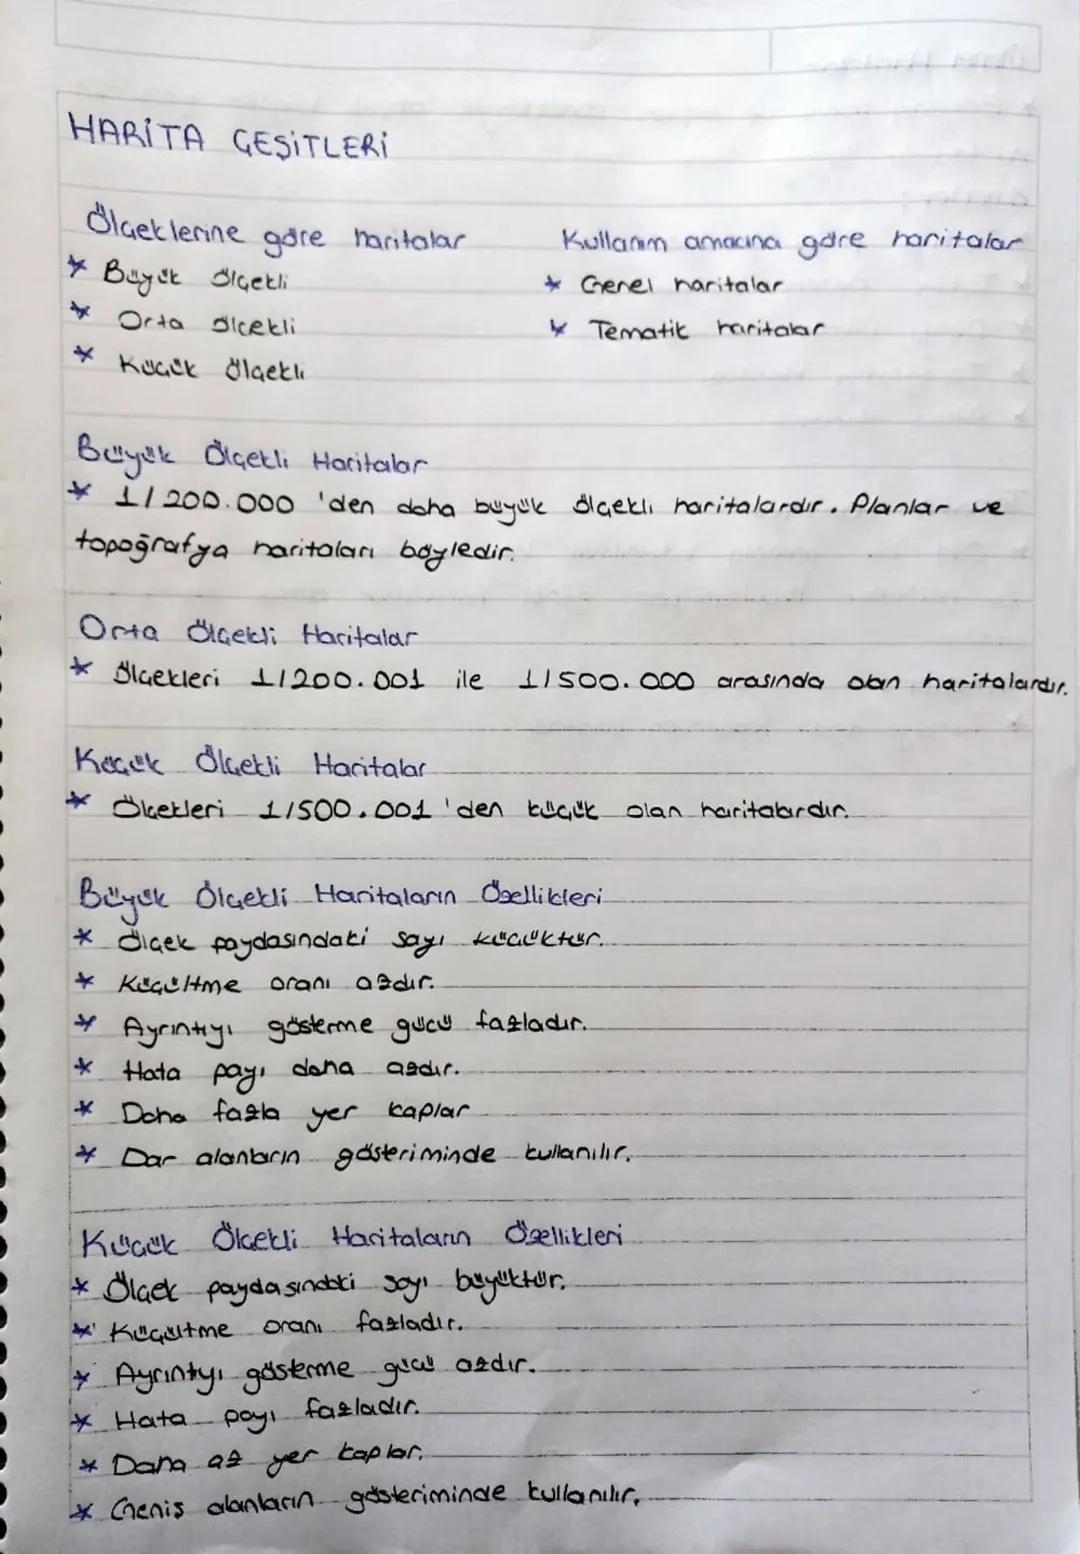 HARİTA ÇEŞİTLERİ
Ölçeklerine göre haritalar
* Büyük ölçekli
* Orta ölçekli
* Küçük ölçekli
Kullanım amacına göre haritalar
* Genel haritalar
* Tematik haritalar
Büyük Ölçekli Haritalar
* 1/200.000 'den daha büyük ölçekli haritalardır. Planlar ve
topoğrafya haritaları böyledir.
Orta Ölçekli Haritalar
* Ölçekleri 1/200.001 ile 1/500.000 arasında olan haritalardır.
Küçük Ölçekli Haritalar
* Ölçekleri 1/500.001 'den küçük olan haritalardır.
Büyük Ölçekli Haritaların Özellikleri
* Ölçek paydasındaki sayı küçüktür.
* Küçültme oranı azdır.
* Ayrıntıyı gösterme gücü fazladır.
* Hata payı daha azdır.
* Daha fazla yer kaplar
* Dar alanların gösteriminde kullanılır.
Küçük Ölçekli Haritaların Özellikleri
* Ölçek paydasındaki sayı büyüktür.
* Küçültme oranı fazladır.
* Ayrıntıyı gösterme gücü azdır.
* Hata payı fazladır.
* Daha az yer kaplar.
* Geniş alanların gösteriminde kullanılır.